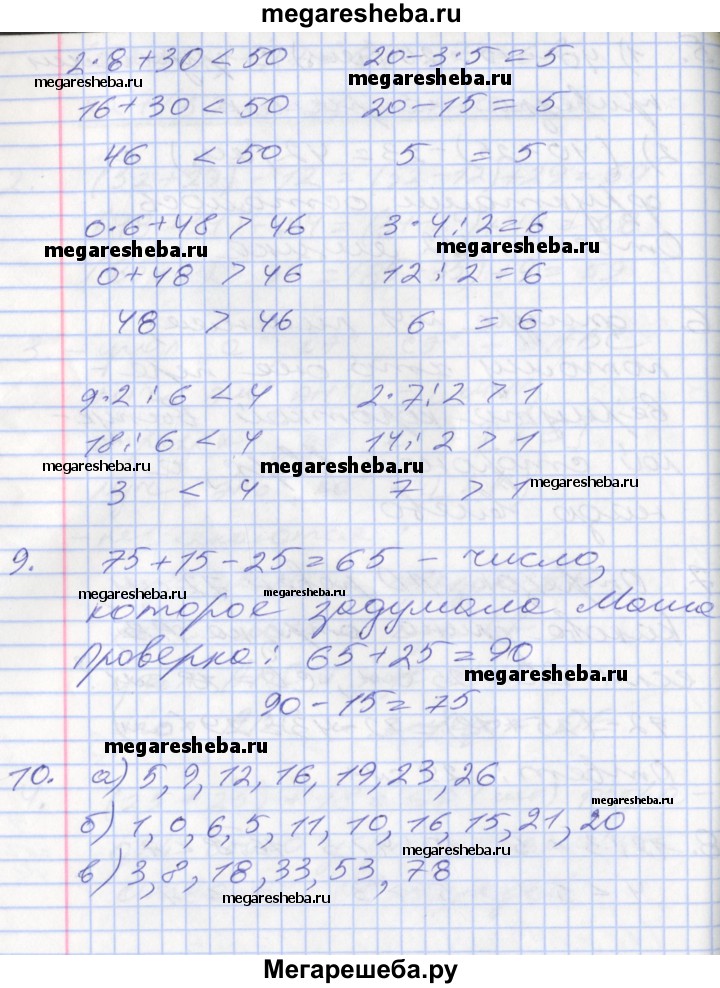 megaresheba.ru
2·8+30<50 20-3·5=5
megaresheba.ru megaresheba.ru
16+30<50 20-15=5
46 < 50 5 = 5
0·6+48>46 3·4:2=6
megaresheba.ru megaresheba.ru
0+48 > 46 12:2=6
48 > 46 6 = 6
9·2:6<4 2·7:2>1
18:6<4 14:2>1
megaresheba.ru megaresheba.ru megaresheba.ru
3 < 4 7 > 1
9. 75+15-25=65 - число,
megaresheba.ru megaresheba.ru
которое задумала Маша
Проверка: 65+25=90
megaresheba.ru
90-15=75
megaresheba.ru
10. а) 5, 9, 12, 16, 19, 23, 26
megaresheba.ru
б) 1, 0, 6, 5, 11, 10, 16, 15, 21, 20
megaresheba.ru
в) 3, 8, 18, 33, 53, 78
megaresheba.ru
Мегарешеба.ру